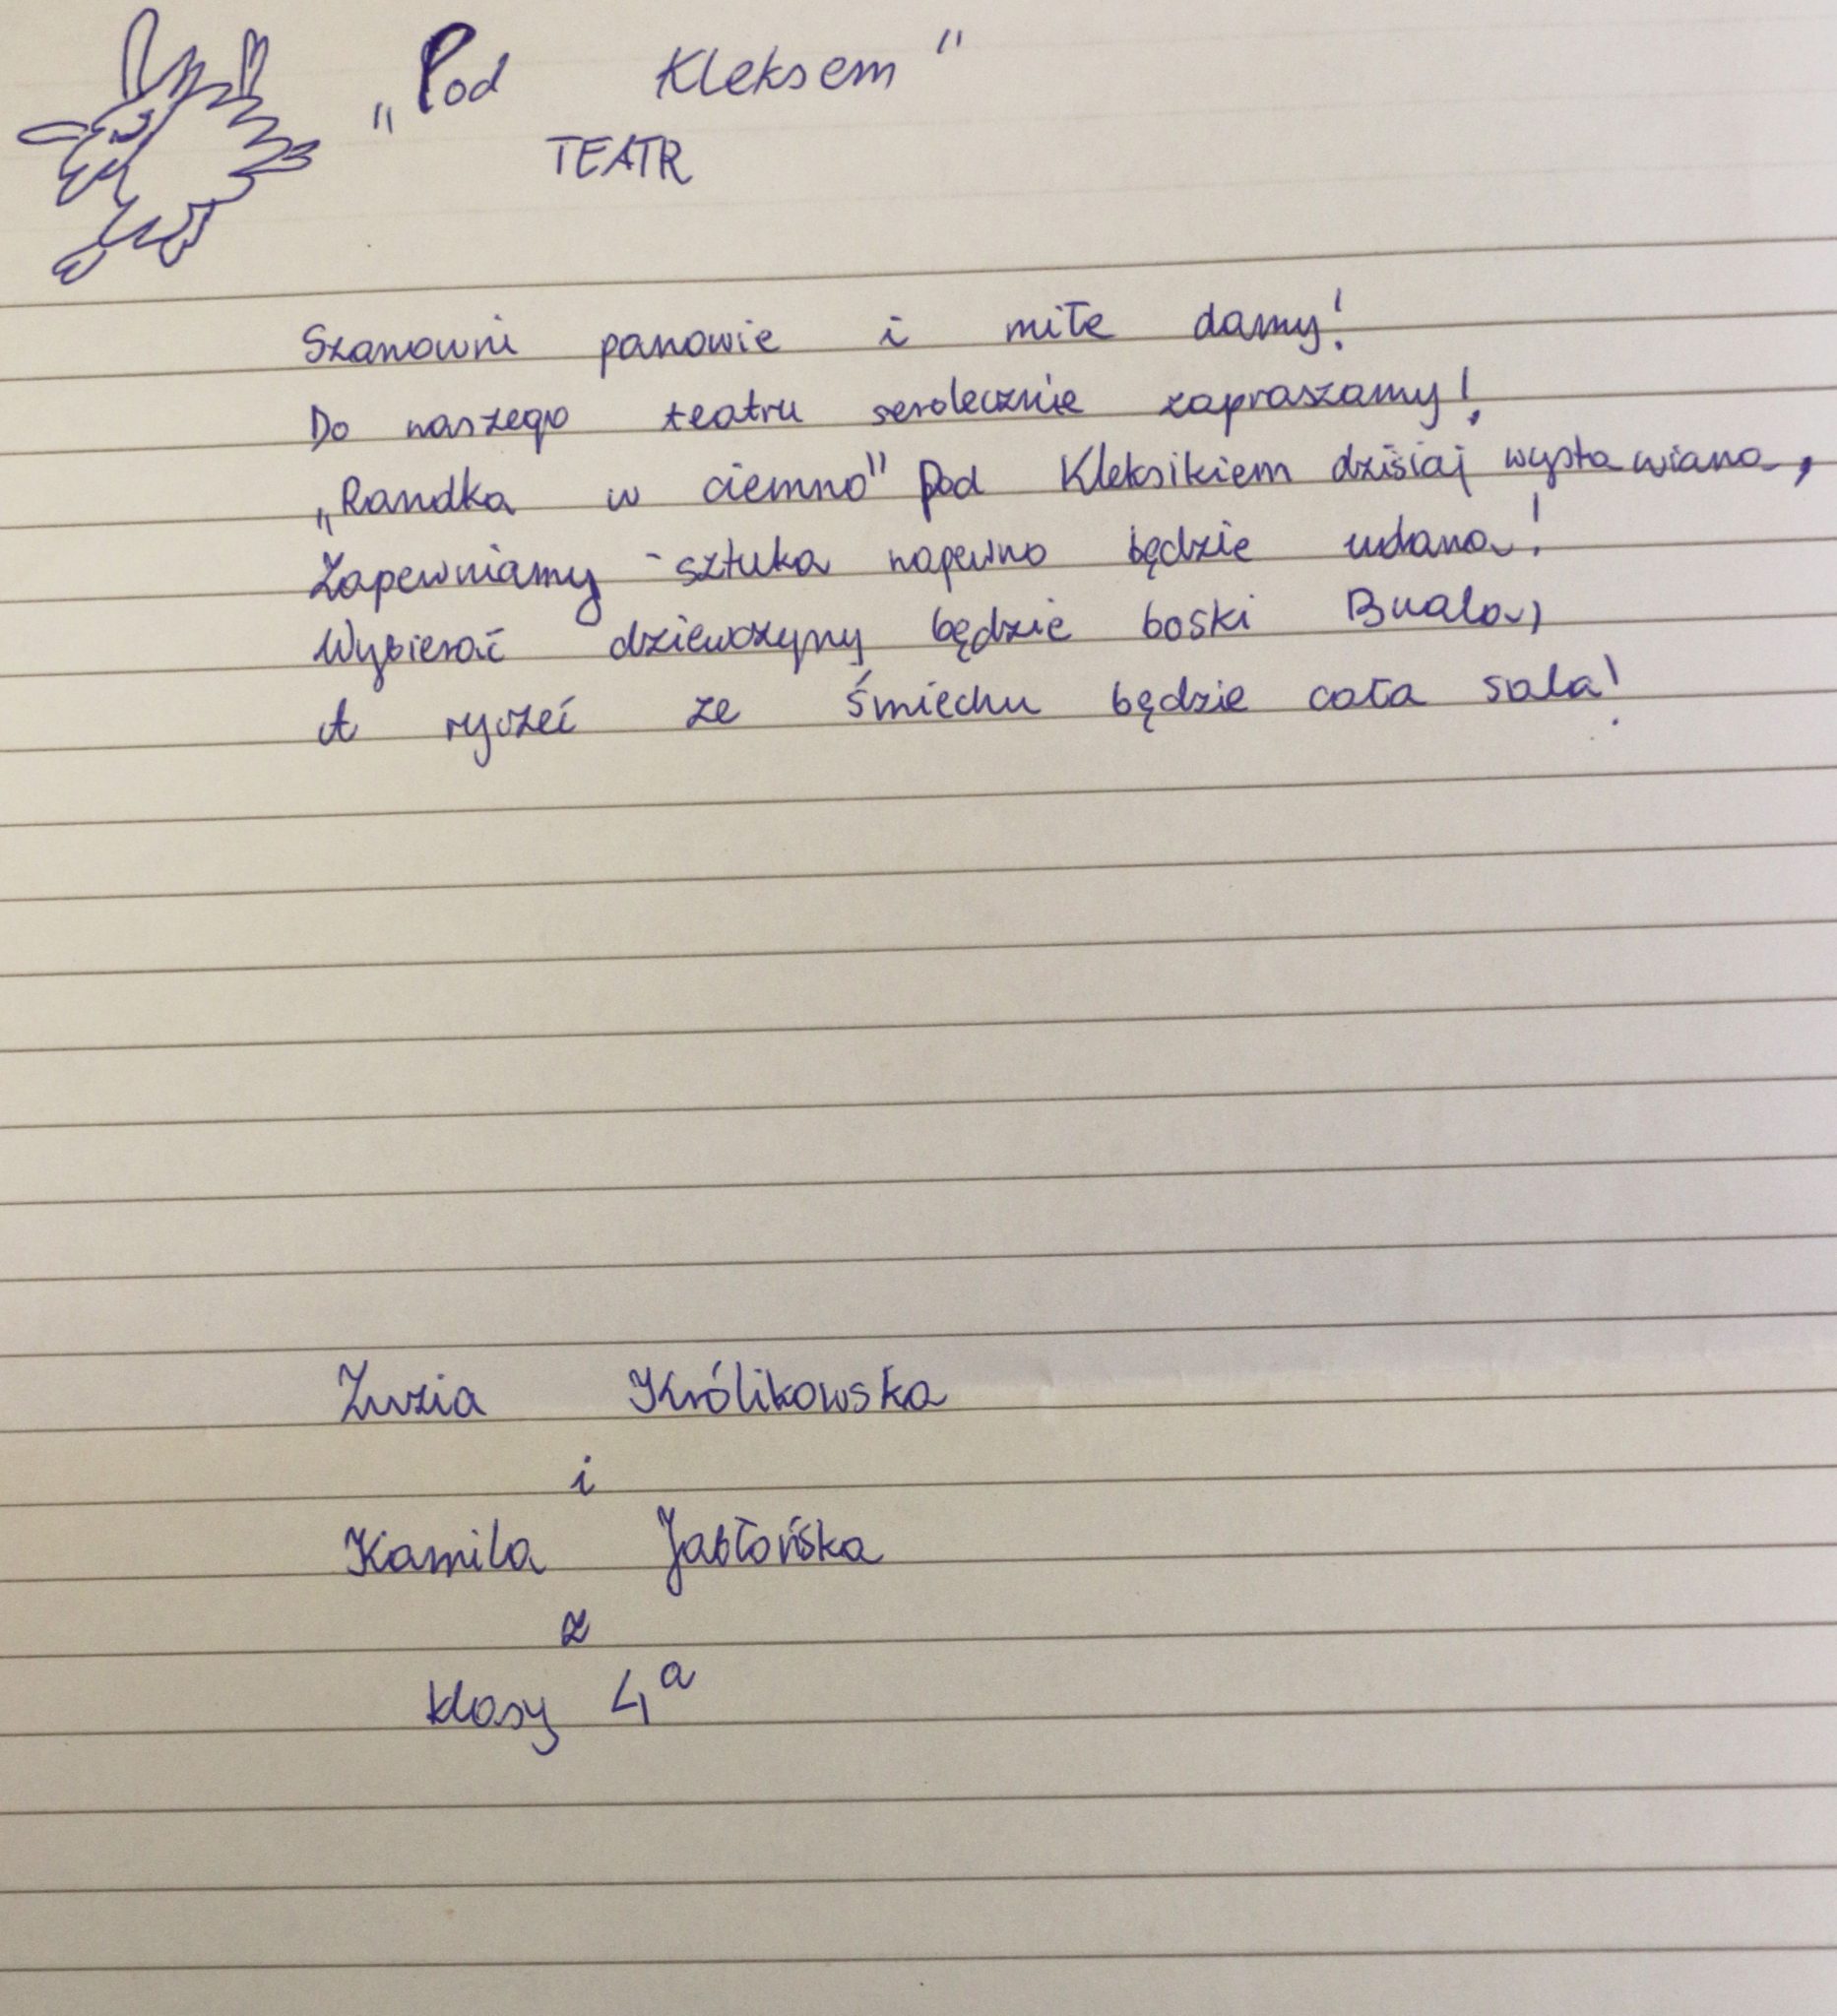 „Pod Kleksem"
TEATR
Szanowni panowie i miłe damy!
Do naszego teatru serdecznie zapraszamy!
„Randka w ciemno" Pod Kleksikiem dzisiaj wystawiana,
Zapewniamy - sztuka napewno będzie udana!
Wybierać dziewczyny będzie boski Buala,
A ryczeć ze śmiechu będzie cała sala!
Zuzia Królikowska
i
Kamila Jabłońska
z
klasy 4a